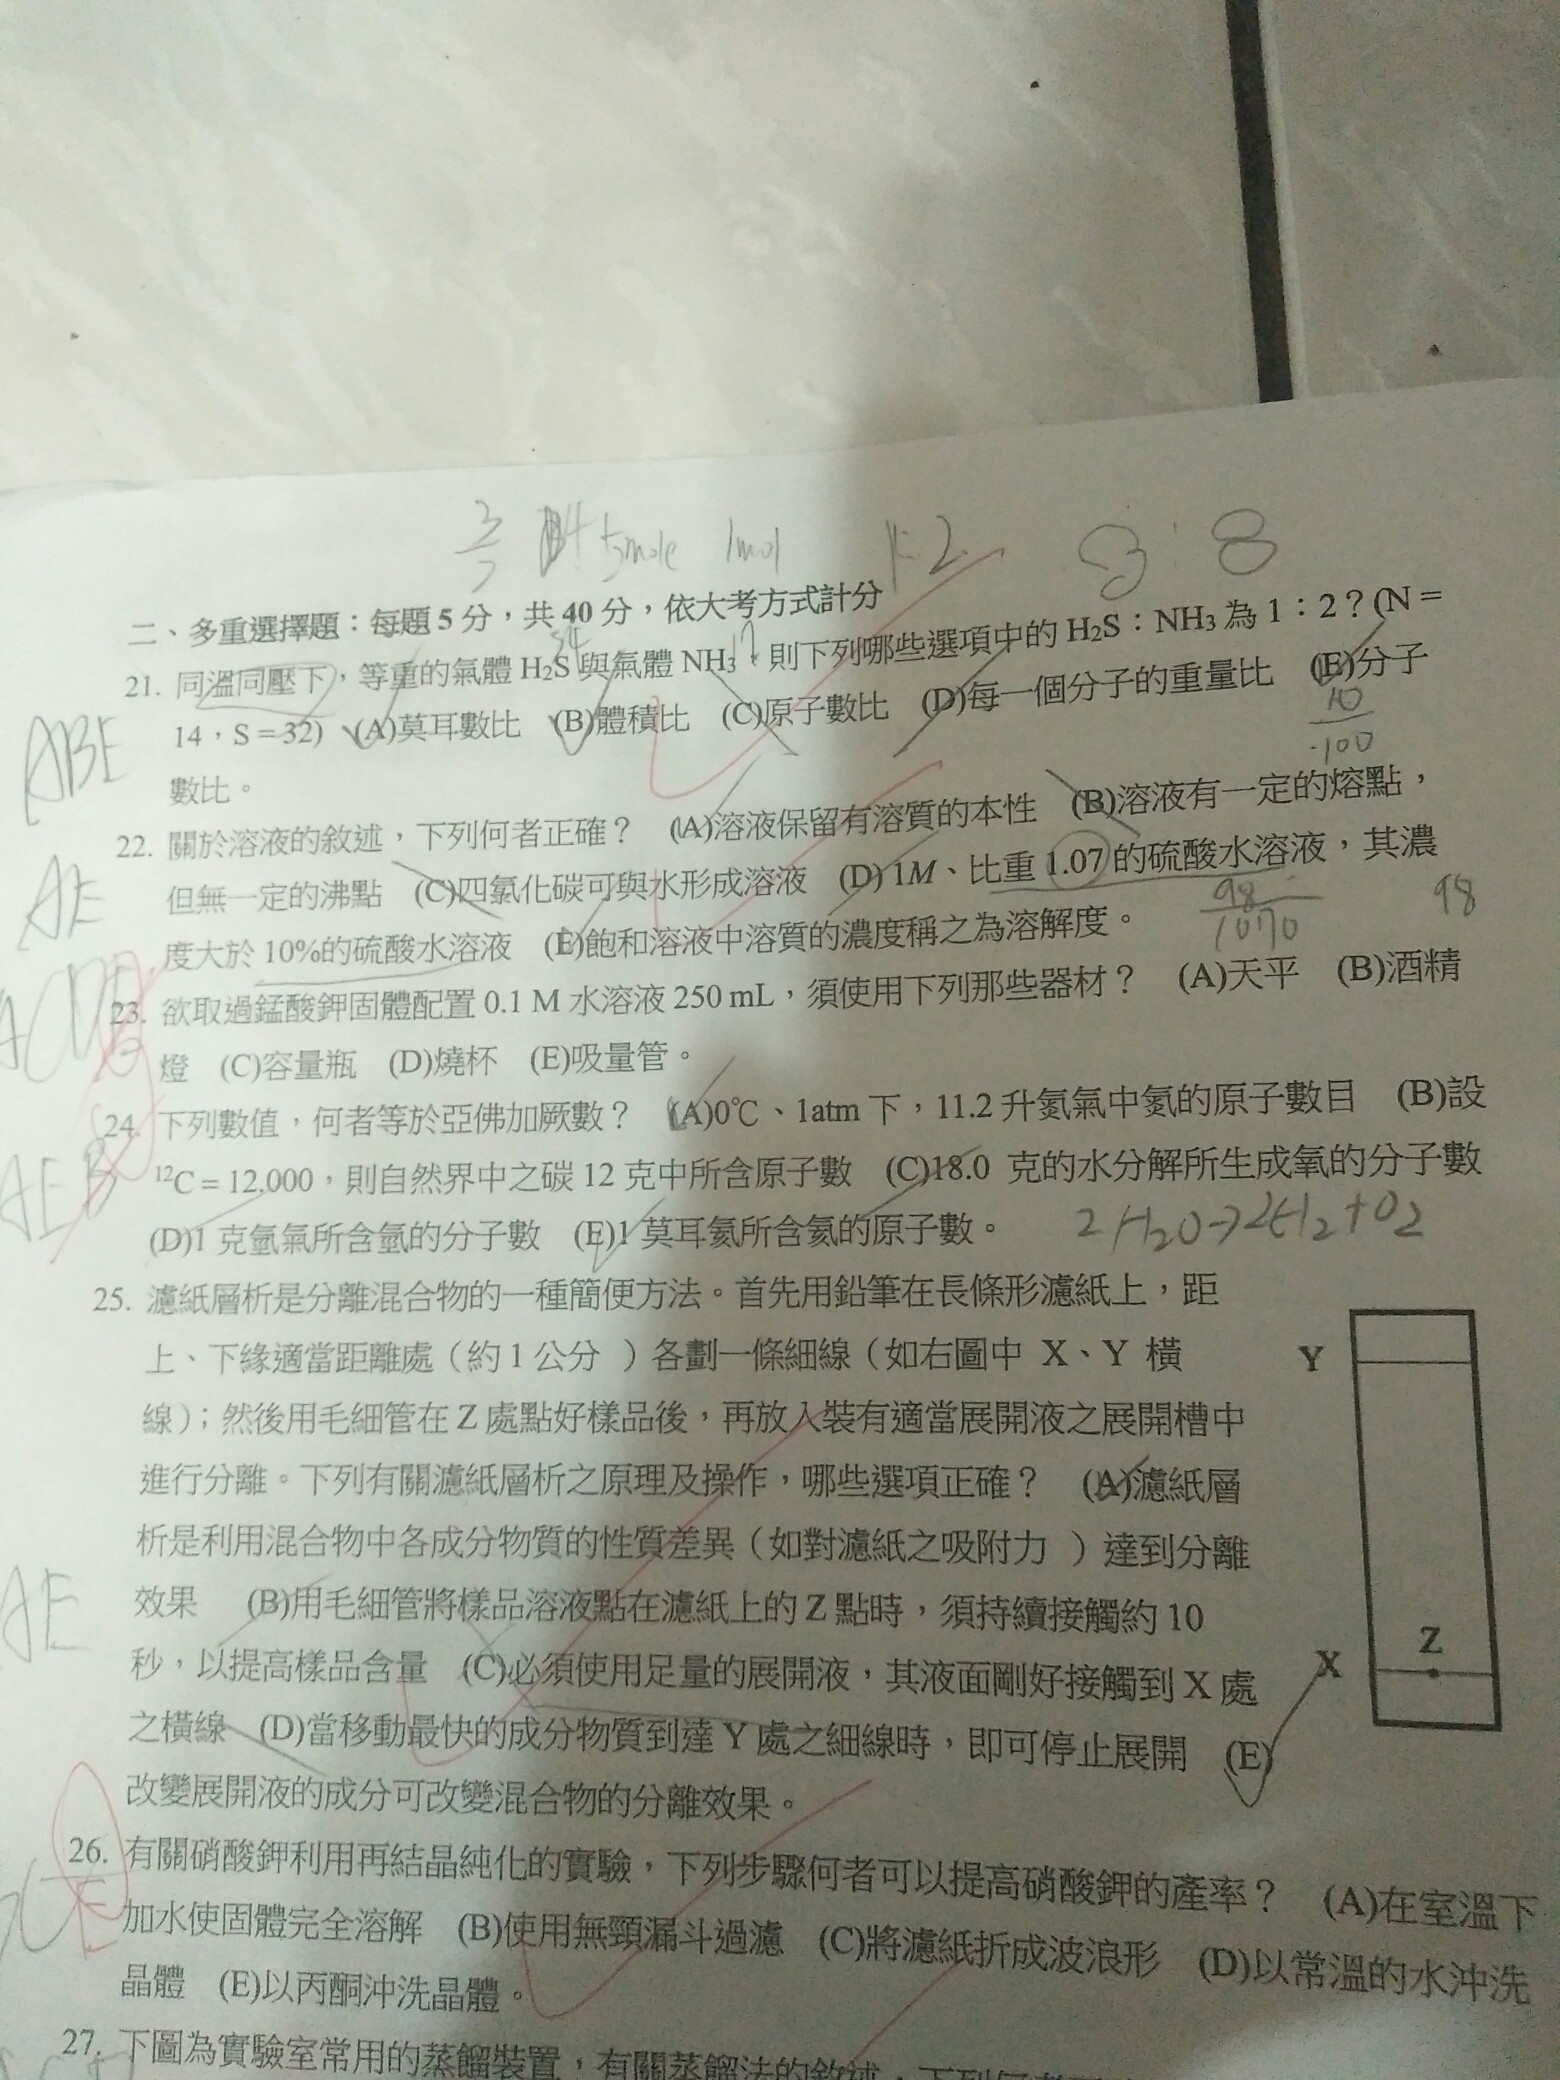 1:2
3:8
二、多重選擇題：每題 5 分，共 40 分，依大考方式計分
34
17
21. 同溫同壓下，等重的氣體 H₂S 與氣體 NH₃，則下列哪些選項中的 H₂S：NH₃ 為 1：2？(N =
14，S = 32) (A)莫耳數比 (B)體積比 (C)原子數比 (D)每一個分子的重量比 (E)分子
數比。
10
100
ABE
22. 關於溶液的敘述，下列何者正確？ (A)溶液保留有溶質的本性 (B)溶液有一定的熔點，
但無一定的沸點 (C)四氯化碳可與水形成溶液 (D) 1M、比重 1.07 的硫酸水溶液，其濃
度大於 10%的硫酸水溶液 (E)飽和溶液中溶質的濃度稱之為溶解度。
98
1070
98
AE
23. 欲取過錳酸鉀固體配置 0.1 M 水溶液 250 mL，須使用下列那些器材？ (A)天平 (B)酒精
燈 (C)容量瓶 (D)燒杯 (E)吸量管。
24. 下列數值，何者等於亞佛加厥數？ (A)0℃、1atm 下，11.2 升氮氣中氮的原子數目 (B)設
¹²C = 12.000，則自然界中之碳 12 克中所含原子數 (C)18.0 克的水分解所生成氧的分子數
(D)1 克氫氣所含氫的分子數 (E)1 莫耳氦所含氦的原子數。
2H₂O→2H₂+O₂
AEB
25. 濾紙層析是分離混合物的一種簡便方法。首先用鉛筆在長條形濾紙上，距
上、下緣適當距離處（約 1 公分 ）各劃一條細線（如右圖中 X、Y 橫
線）；然後用毛細管在 Z 處點好樣品後，再放入裝有適當展開液之展開槽中
進行分離。下列有關濾紙層析之原理及操作，哪些選項正確？ (A)濾紙層
析是利用混合物中各成分物質的性質差異（如對濾紙之吸附力 ）達到分離
效果 (B)用毛細管將樣品溶液點在濾紙上的 Z 點時，須持續接觸約 10
秒，以提高樣品含量 (C)必須使用足量的展開液，其液面剛好接觸到 X 處
之橫線 (D)當移動最快的成分物質到達 Y 處之細線時，即可停止展開 (E)
改變展開液的成分可改變混合物的分離效果。
Y
Z
X
AE
26. 有關硝酸鉀利用再結晶純化的實驗，下列步驟何者可以提高硝酸鉀的產率？ (A)在室溫下
加水使固體完全溶解 (B)使用無頸漏斗過濾 (C)將濾紙折成波浪形 (D)以常溫的水沖洗
晶體 (E)以丙酮沖洗晶體。
27. 下圖為實驗室常用的蒸餾裝置，有關蒸餾法的敘述，下列何者